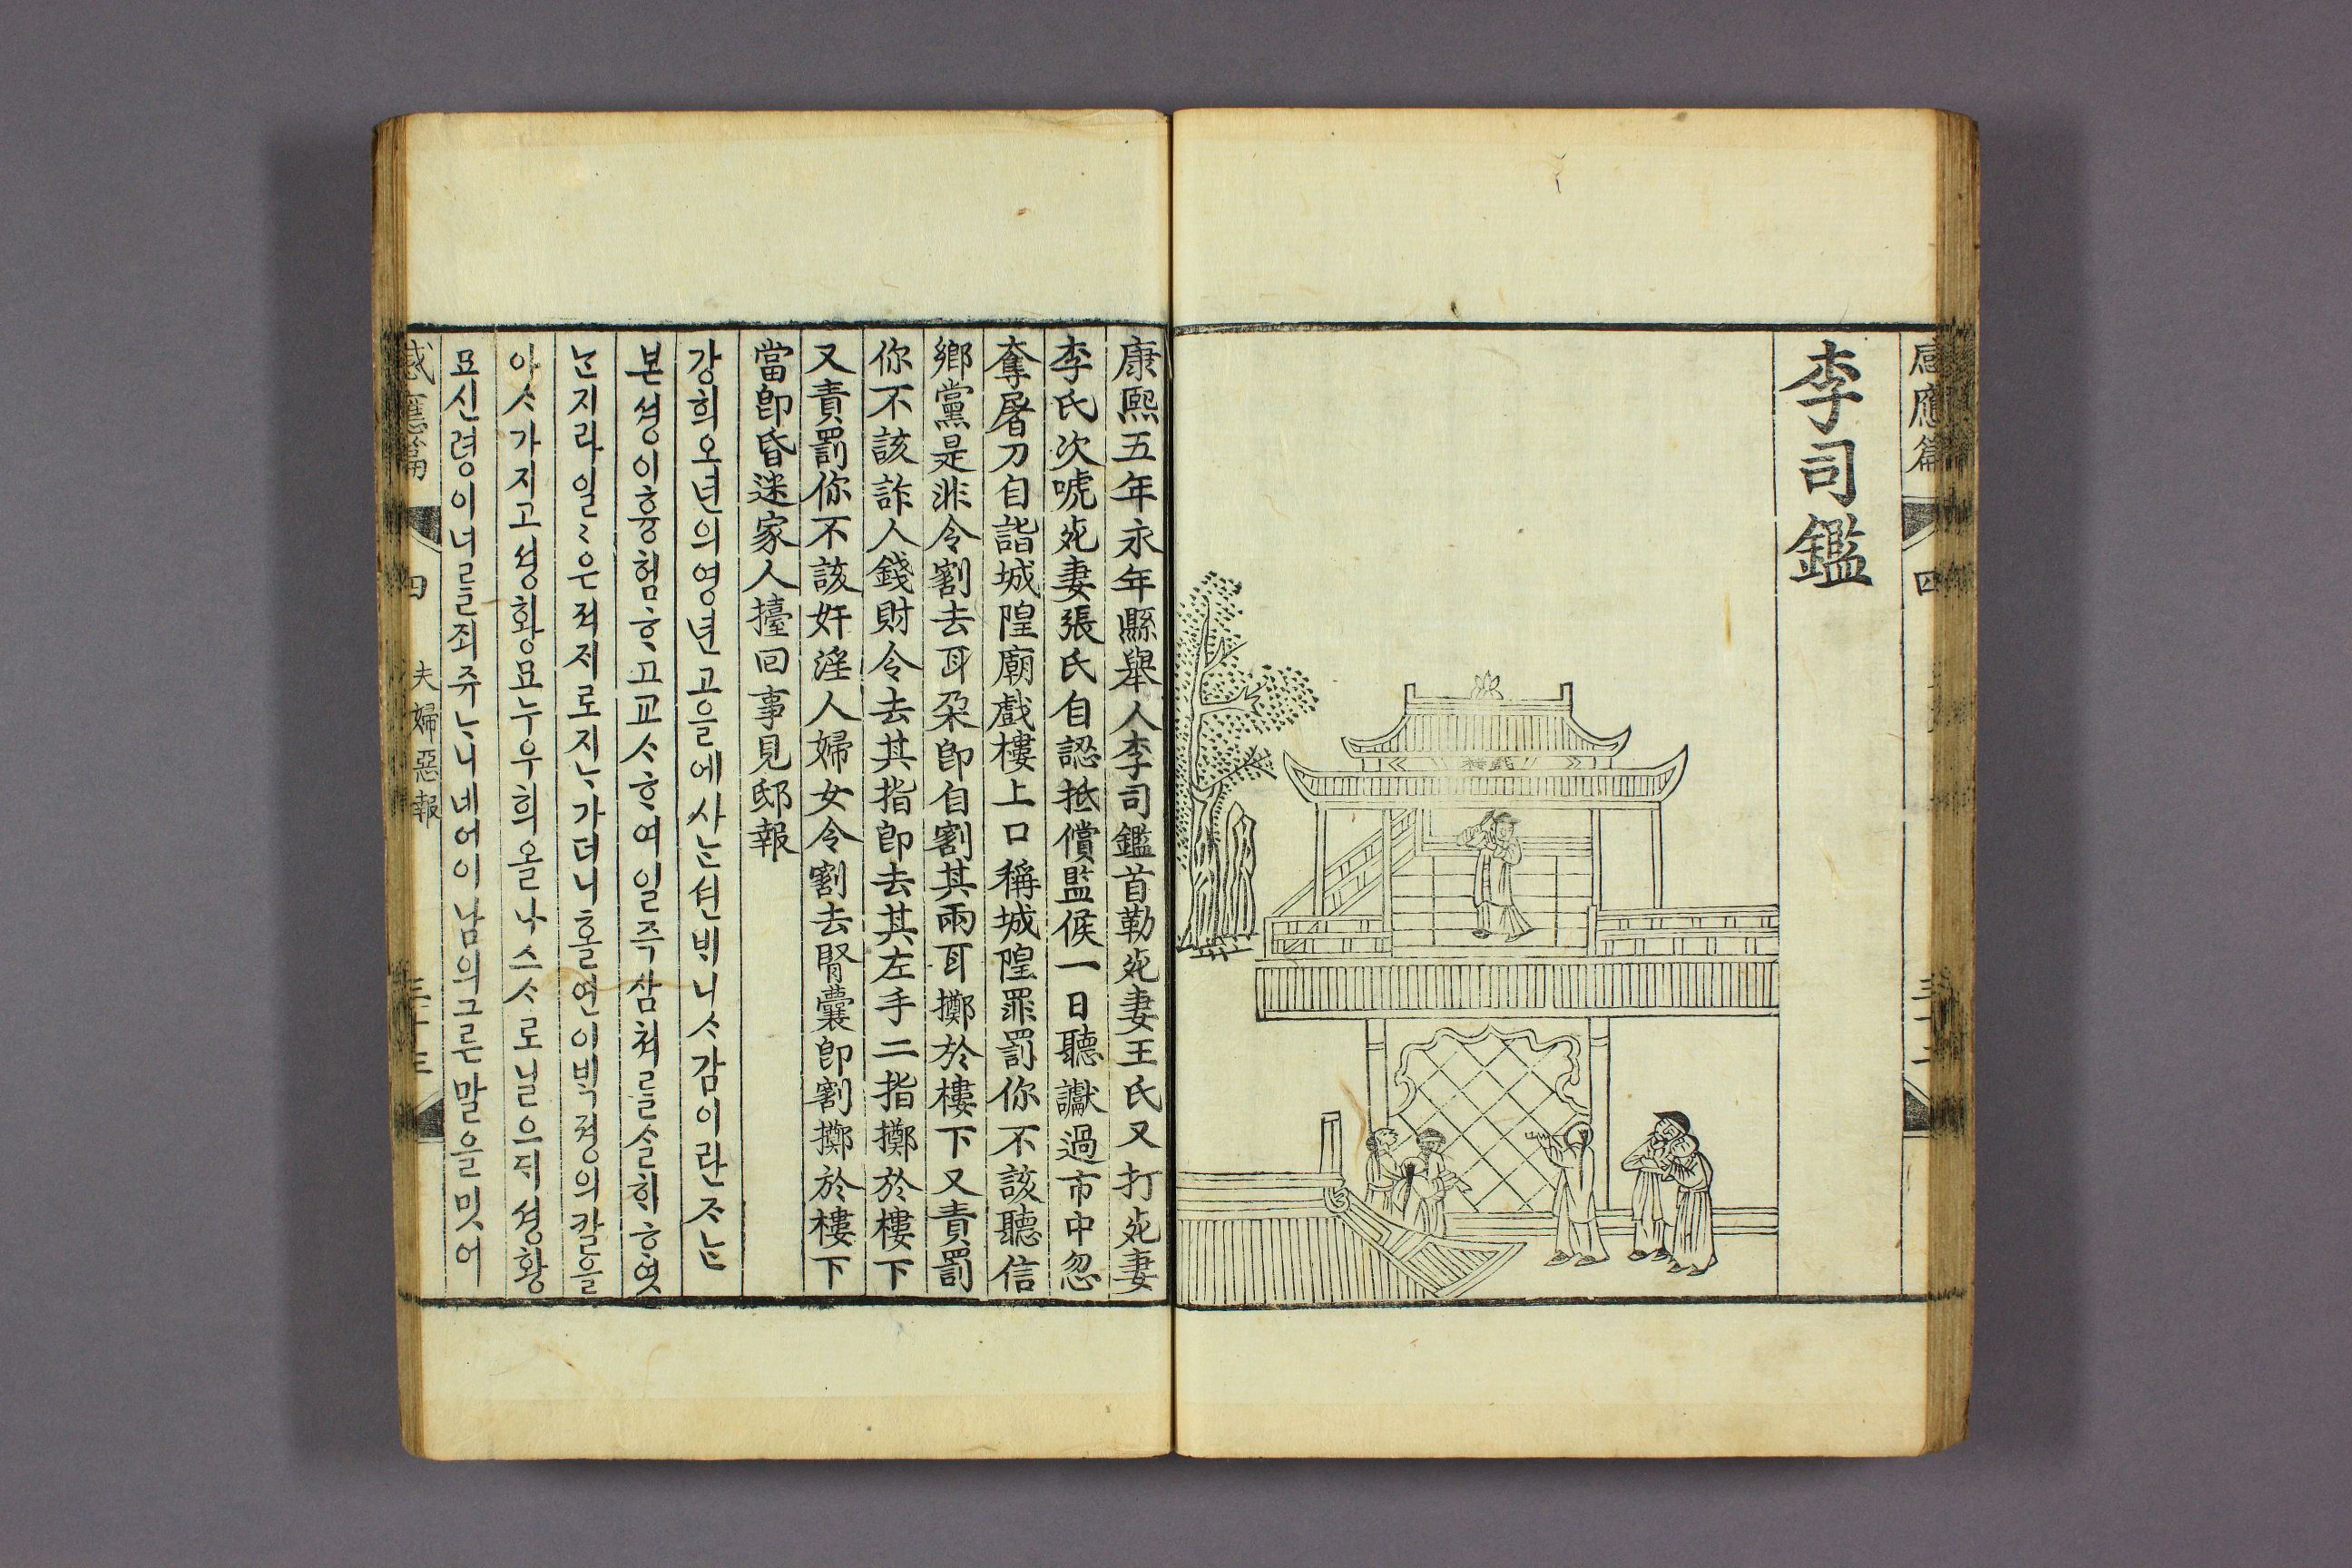 感應篇 四
李司鑑
戱樓
康熙五年永年縣舉人李司鑑首勒死妻王氏又打死妻
李氏次唬死妻張氏自認抵償監候一日聽讞過市中忽
奪屠刀自詣城隍廟戲樓上口稱城隍罪罰你不該聽信
鄕黨是非令割去耳朶卽自割其兩耳擲於樓下又責罰
你不該詐人錢財令去其指卽去其左手二指擲於樓下
又責罰你不該奸淫人婦女令割去腎囊卽割擲於樓下
當卽昏迷家人擡回事見邸報
강희오년의영년고을에사ᄂᆞᆫ션ᄇᆡ니ᄉᆞ감이란ᄌᆞᄂᆞᆫ
본셩이흉험ᄒᆞ고교ᄉᆞᄒᆞ여일즉삼쳐를ᄉᆞᆯᄒᆡᄒᆞ엿
ᄂᆞᆫ지라일〻은져ᄌᆡ로지ᄂᆞ가더니홀연이ᄇᆡᆨ졍의칼을
아ᄉᆞ가지고셩황묘누우희올ᄂᆞ스ᄉᆞ로닐으ᄃᆡ셩황
묘신령이너를죄쥬ᄂᆞ니네어이남의그른말을밋어
感應篇 四 夫婦惡報 三十三